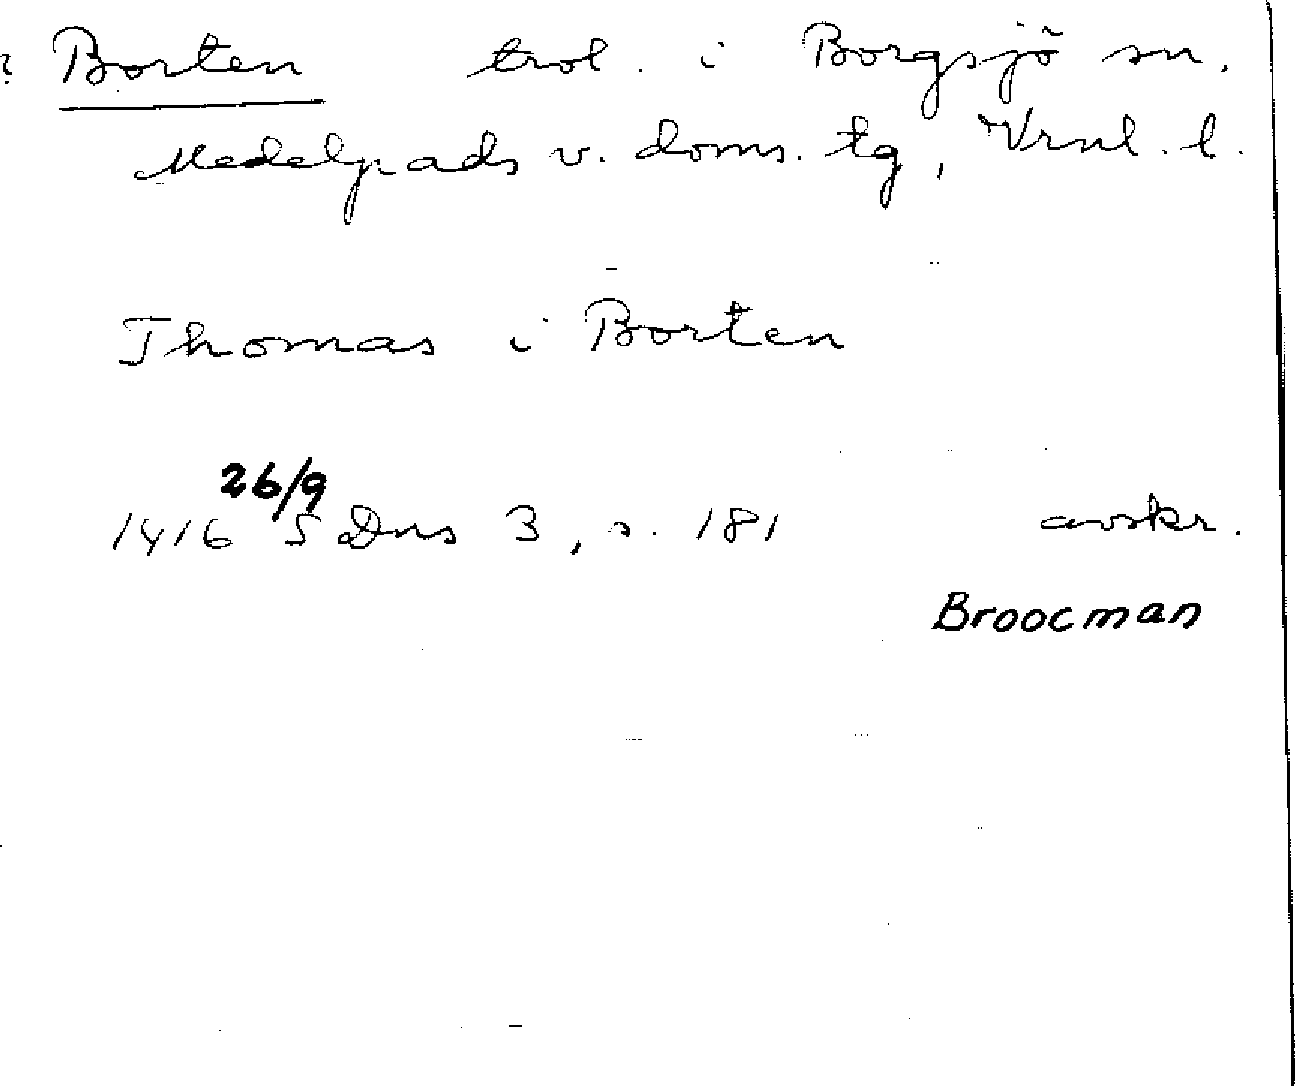 ? Borten trol. i Borgsjö sn.
Medelpads v. doms. tg, Vrnl. l.
Thomas i Borten
1416 26/9 SDns 3, s. 181 avskr.
Broocman